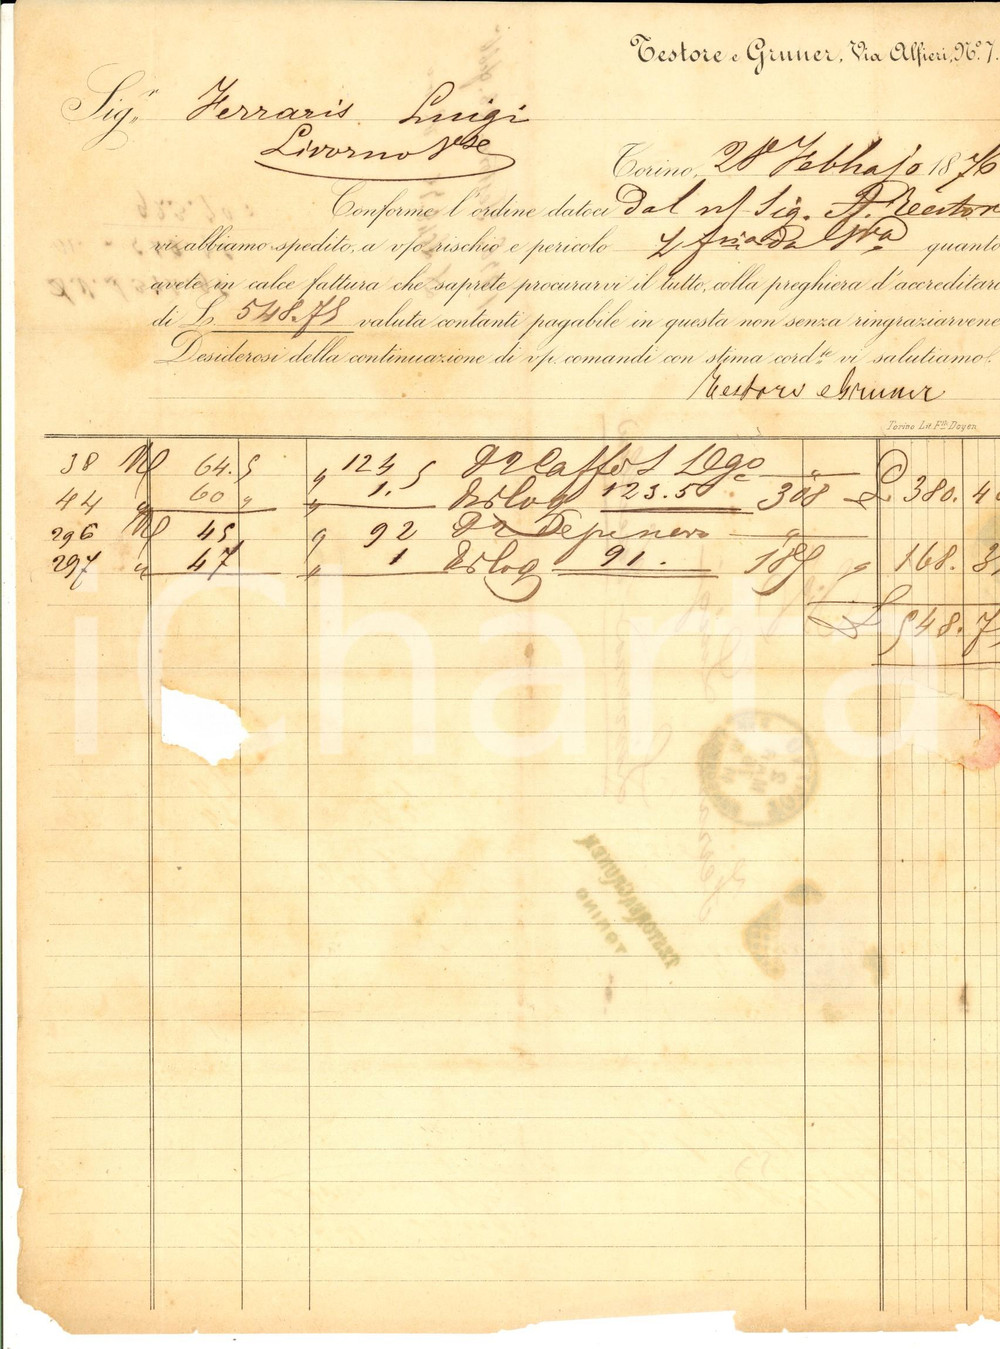 Testore e Gruner, Via Alfieri, Nº 7.
Sigr Ferraris Luigi
Livorno Vse
Torino, 28 Febbrajo 1876
Conforme l'ordine datoci Dal n/ Sig.
vi abbiamo spedito, a v/o rischio e pericolo quanto
avete in calce fattura che saprete procurarvi il tutto, colla preghiera d'accreditar
di L. 548.75 valuta contanti pagabile in questa non senza ringraziarvene
Desiderosi della continuazione di v/p. comandi con stima cord.te vi salutiamo.
Testore e Gruner
Torino Lit. F.lli Doyen
38 64.5 124 5 Caffè S Dgo
44 60 1.5 123.50 308 380. 4
296 45 92 Pepe nero
297 47 1 91. 185 168. 3
548.7
TESTORE & GRUNER
TORINO
iCharta